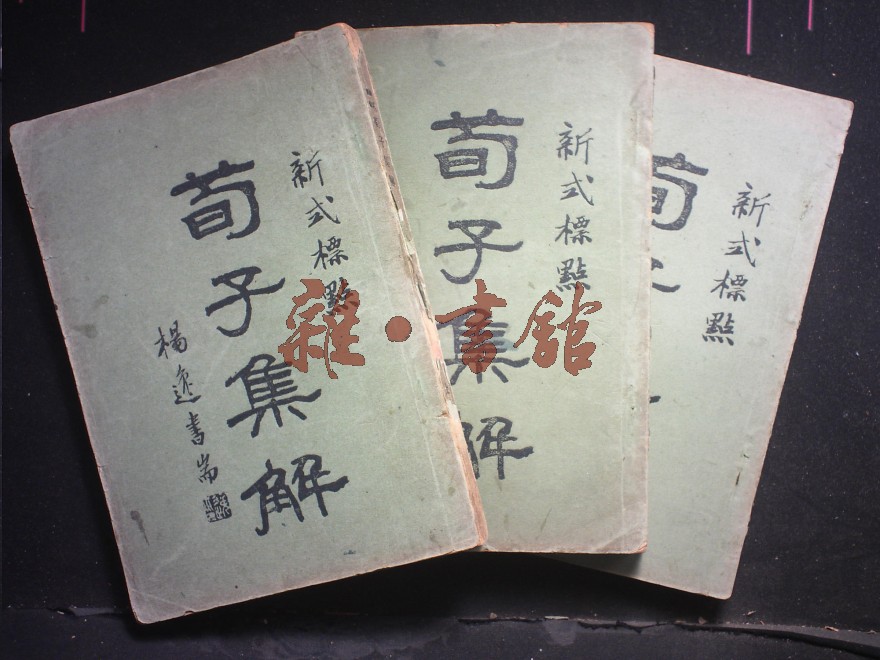 新式標點
荀子集解
楊逸書耑
新式標點
荀子集解
新式標點
荀
雜·書館